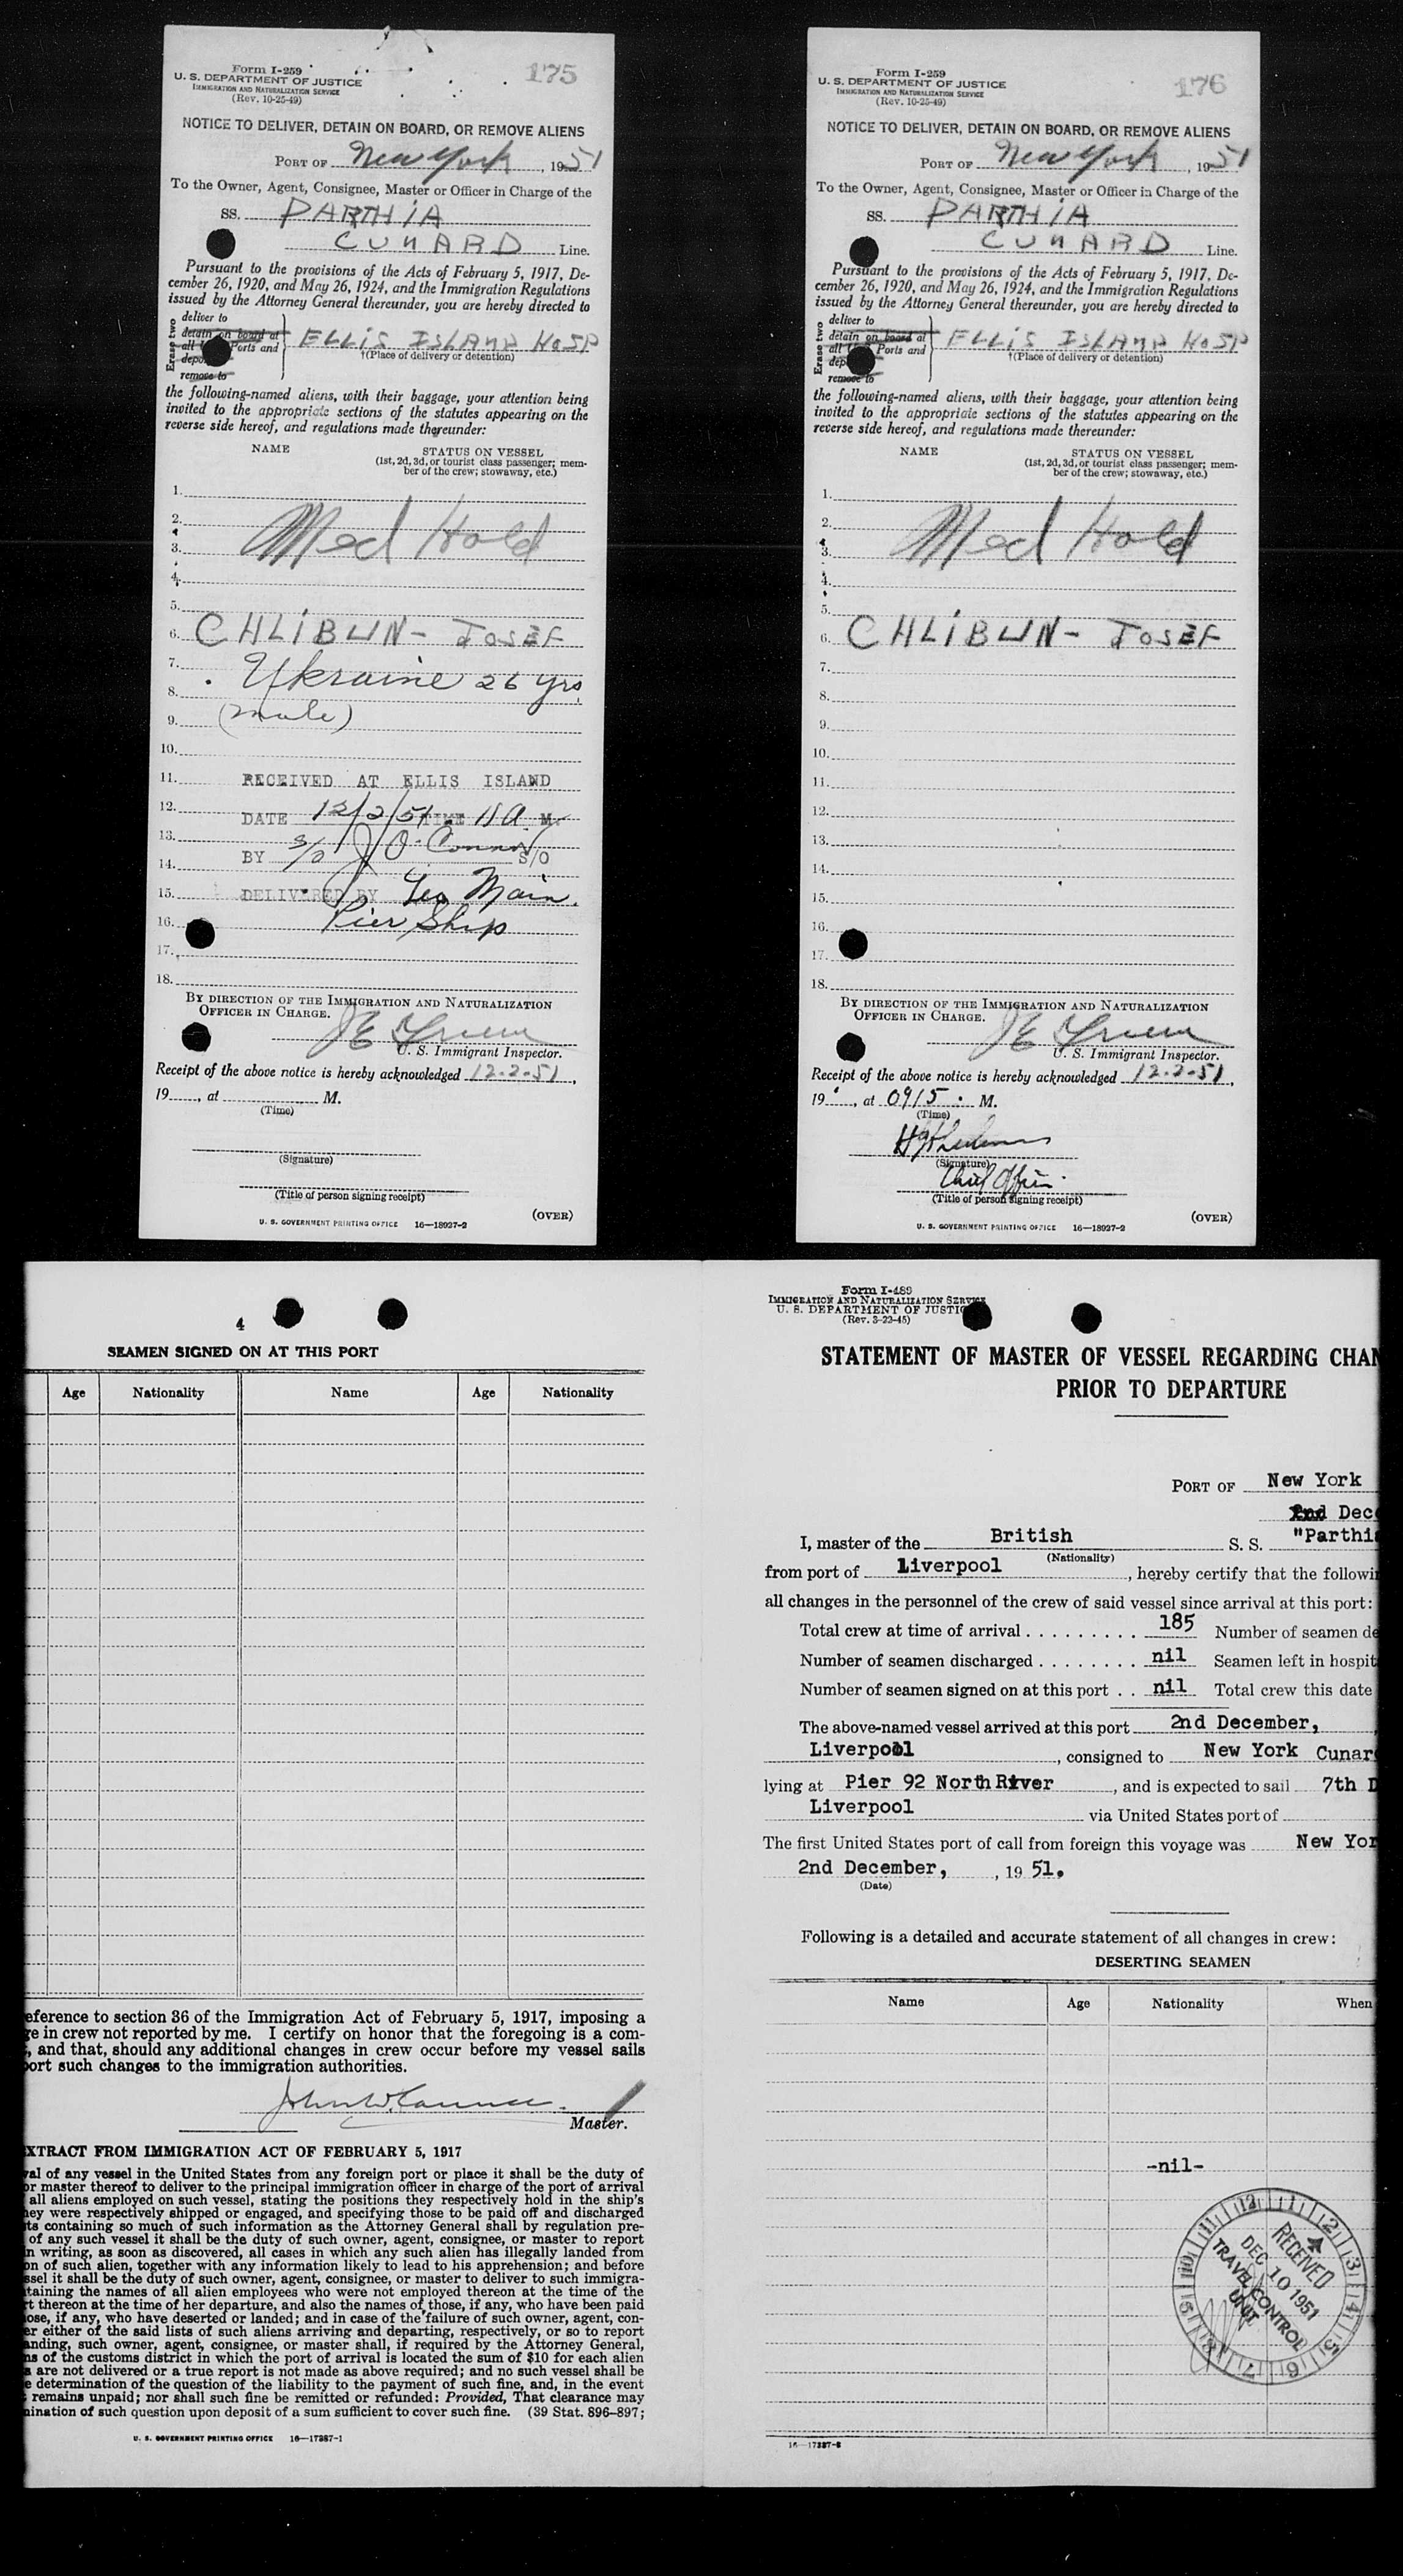 Form I-259
U. S. DEPARTMENT OF JUSTICE
IMMIGRATION AND NATURALIZATION SERVICE
(Rev. 10-25-49)
175
NOTICE TO DELIVER, DETAIN ON BOARD, OR REMOVE ALIENS
PORT OF New York, 1951
To the Owner, Agent, Consignee, Master or Officer in Charge of the
SS. PARTHIA
CUNARD Line.
Pursuant to the provisions of the Acts of February 5, 1917, De-
cember 26, 1920, and May 26, 1924, and the Immigration Regulations
issued by the Attorney General thereunder, you are hereby directed to
Erase two
deliver to
detain on board at
all Ports and
remove to
ELLIS ISLAND HOSP
†(Place of delivery or detention)
the following-named aliens, with their baggage, your attention being
invited to the appropriate sections of the statutes appearing on the
reverse side hereof, and regulations made thereunder:
NAME STATUS ON VESSEL
(1st, 2d, 3d, or tourist class passenger; mem-
ber of the crew; stowaway, etc.)
1.
2.
3. Med Hold
4.
5.
6. CHLIBUN- JOSEF
7. Ukraine 26 yrs.
8.
9. (male)
10.
11. RECEIVED AT ELLIS ISLAND
12. DATE 12/2/51 TIME 11 A M.
13.
BY S/O J O'Connor S/O
14.
15. DELIVERED BY Geo Main.
16. Pier Ship
17.
18.
BY DIRECTION OF THE IMMIGRATION AND NATURALIZATION
OFFICER IN CHARGE.
U. S. Immigrant Inspector.
Receipt of the above notice is hereby acknowledged 12-2-51,
19, at M.
(Time)
(Signature)
(Title of person signing receipt)
(OVER)
U. S. GOVERNMENT PRINTING OFFICE 16—18927-2
Form I-259
U. S. DEPARTMENT OF JUSTICE
IMMIGRATION AND NATURALIZATION SERVICE
(Rev. 10-25-49)
176
NOTICE TO DELIVER, DETAIN ON BOARD, OR REMOVE ALIENS
PORT OF New York, 1951
To the Owner, Agent, Consignee, Master or Officer in Charge of the
SS. PARTHIA
CUNARD Line.
Pursuant to the provisions of the Acts of February 5, 1917, De-
cember 26, 1920, and May 26, 1924, and the Immigration Regulations
issued by the Attorney General thereunder, you are hereby directed to
Erase two
deliver to
detain on board at
all Ports and
remove to
ELLIS ISLAND HOSP
†(Place of delivery or detention)
the following-named aliens, with their baggage, your attention being
invited to the appropriate sections of the statutes appearing on the
reverse side hereof, and regulations made thereunder:
NAME STATUS ON VESSEL
(1st, 2d, 3d, or tourist class passenger; mem-
ber of the crew; stowaway, etc.)
1.
2.
3. Med Hold
4.
5.
6. CHLIBUN- JOSEF
7.
8.
9.
10.
11.
12.
13.
14.
15.
16.
17.
18.
BY DIRECTION OF THE IMMIGRATION AND NATURALIZATION
OFFICER IN CHARGE.
U. S. Immigrant Inspector.
Receipt of the above notice is hereby acknowledged 12-2-51,
19, at 0915 M.
(Time)
(Signature)
Chief Officer
(Title of person signing receipt)
(OVER)
U. S. GOVERNMENT PRINTING OFFICE 16—18927-2
4
SEAMEN SIGNED ON AT THIS PORT
Age Nationality Name Age Nationality
eference to section 36 of the Immigration Act of February 5, 1917, imposing a
e in crew not reported by me. I certify on honor that the foregoing is a com-
, and that, should any additional changes in crew occur before my vessel sails
ort such changes to the immigration authorities.
Master.
XTRACT FROM IMMIGRATION ACT OF FEBRUARY 5, 1917
val of any vessel in the United States from any foreign port or place it shall be the duty of
or master thereof to deliver to the principal immigration officer in charge of the port of arrival
all aliens employed on such vessel, stating the positions they respectively hold in the ship's
hey were respectively shipped or engaged, and specifying those to be paid off and discharged
ts containing so much of such information as the Attorney General shall by regulation pre-
of any such vessel it shall be the duty of such owner, agent, consignee, or master to report
n writing, as soon as discovered, all cases in which any such alien has illegally landed from
on of such alien, together with any information likely to lead to his apprehension; and before
ssel it shall be the duty of such owner, agent, consignee, or master to deliver to such immigra-
taining the names of all alien employees who were not employed thereon at the time of the
t thereon at the time of her departure, and also the names of those, if any, who have been paid
ose, if any, who have deserted or landed; and in case of the failure of such owner, agent, con-
er either of the said lists of such aliens arriving and departing, respectively, or so to report
anding, such owner, agent, consignee, or master shall, if required by the Attorney General,
ns of the customs district in which the port of arrival is located the sum of $10 for each alien
s are not delivered or a true report is not made as above required; and no such vessel shall be
e determination of the question of the liability to the payment of such fine, and, in the event
remains unpaid; nor shall such fine be remitted or refunded: Provided, That clearance may
nination of such question upon deposit of a sum sufficient to cover such fine. (39 Stat. 896–897;
U. S. GOVERNMENT PRINTING OFFICE 16—17387-1
Form I-489
IMMIGRATION AND NATURALIZATION SERVICE
U. S. DEPARTMENT OF JUSTIC
(Rev. 3-22-45)
STATEMENT OF MASTER OF VESSEL REGARDING CHAN
PRIOR TO DEPARTURE
PORT OF New York
2nd Dece
I, master of the British S. S. "Parthia
(Nationality)
from port of Liverpool, hereby certify that the followi
all changes in the personnel of the crew of said vessel since arrival at this port:
Total crew at time of arrival 185 Number of seamen de
Number of seamen discharged nil Seamen left in hospit
Number of seamen signed on at this port nil Total crew this date
The above-named vessel arrived at this port 2nd December,
Liverpool, consigned to New York Cunar
lying at Pier 92 North River, and is expected to sail 7th D
Liverpool via United States port of
The first United States port of call from foreign this voyage was New Yor
2nd December, , 19 51.
(Date)
Following is a detailed and accurate statement of all changes in crew:
DESERTING SEAMEN
Name Age Nationality When
-nil-
RECEIVED
DEC 10 1951
TRAVEL CONTROL
UNIT
16—17387-1